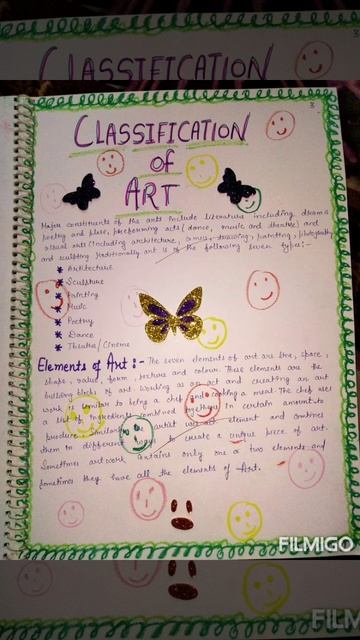 CLASSIFICATION
3
CLASSIFICATION
of
ART
Major constituents of the arts include literature including drama
poetry and prose, performing arts (dance, music and theatre) and
visual arts (including architecture, drawing, painting, photography
and sculpting Traditionally art is of the following seven types:-
* Architecture
* Sculpture
* Painting
* Music
* Poetry
* Dance
* Theatre/Cinema
Elements of Art:- The seven elements of art are line, space,
shape, value, form, texture and colour. These elements are the
building blocks of art. working as an act and creating an art
work is similar to being a chef and cooking a meal. The chef uses
a list of ingredients combined together in certain amounts
produce Similarly artist uses element and combines
them in different ways create a unique piece of art.
Sometimes art work contains only one or two elements and
sometimes they have all the elements of Art.
FILMIGO
FILM